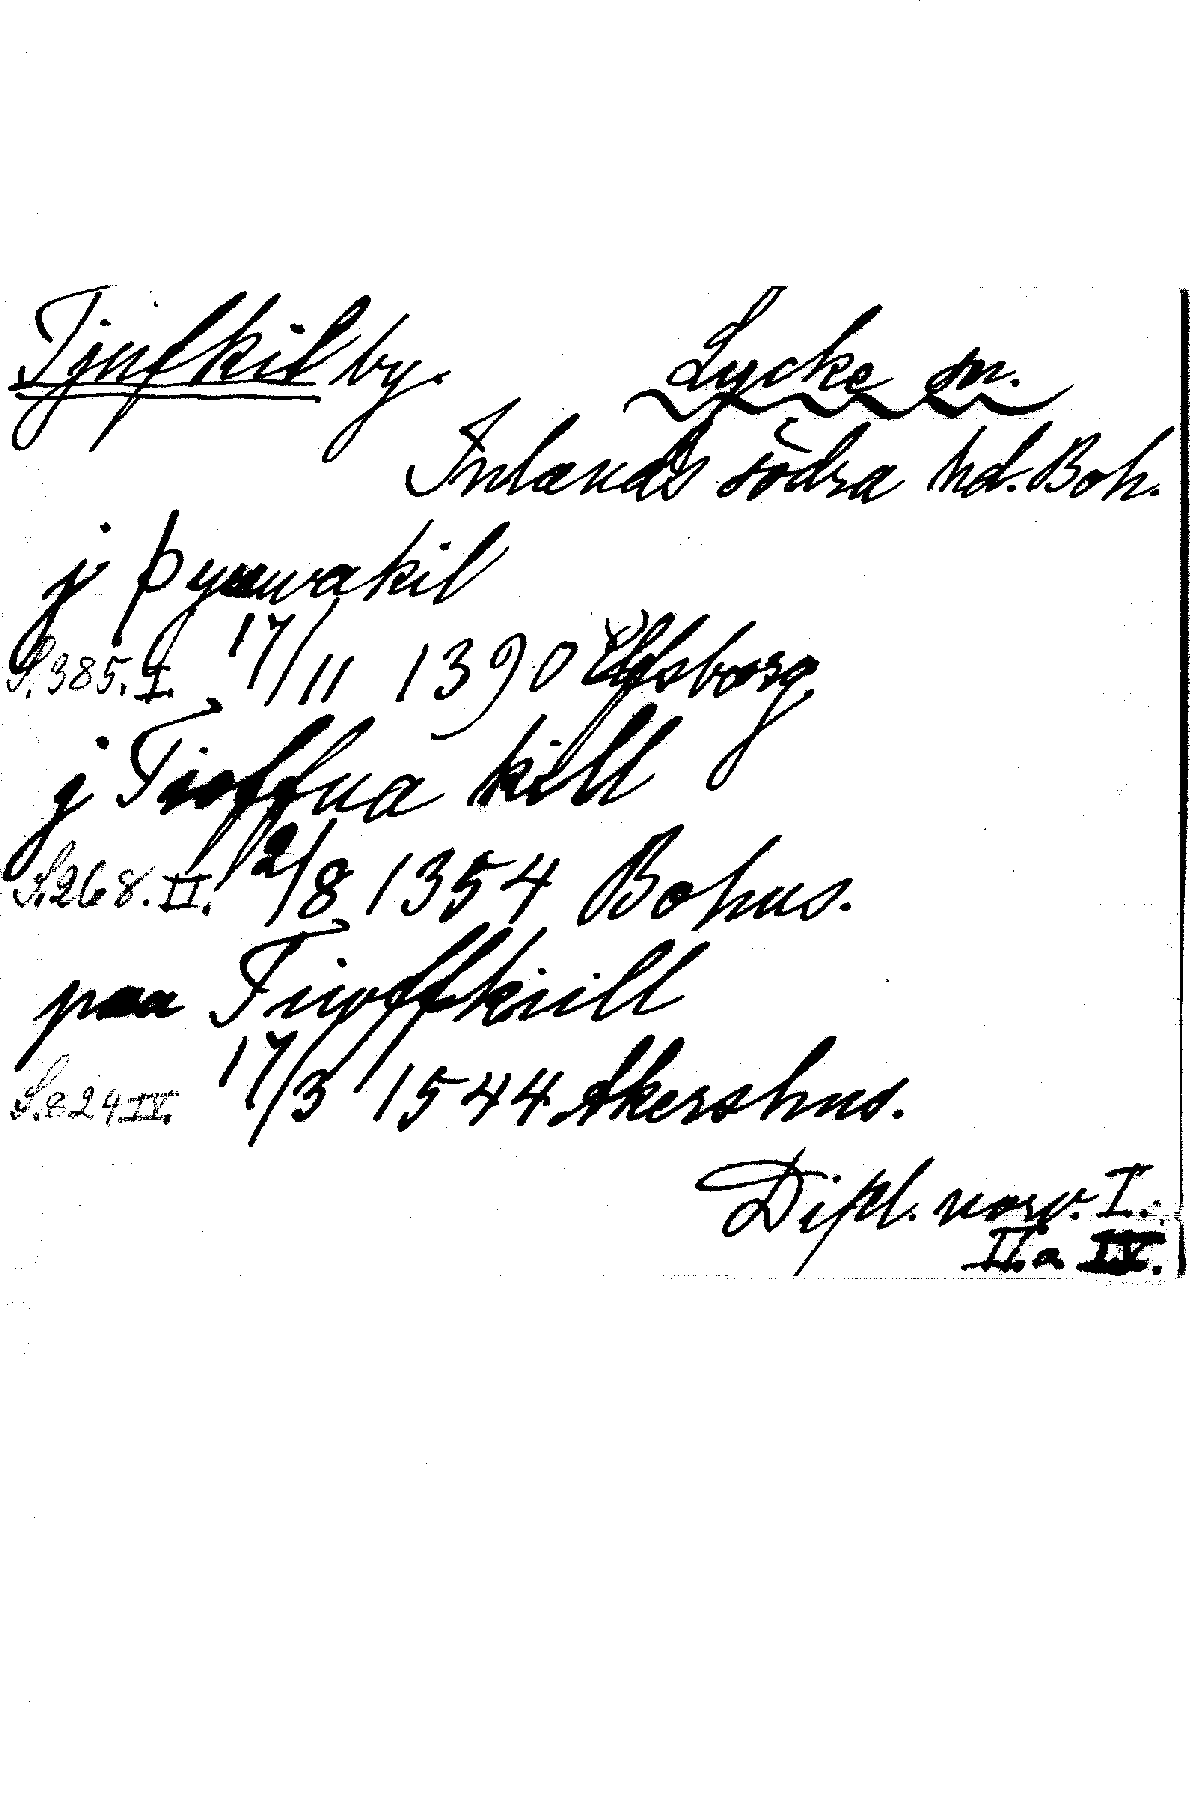 Tjufkil by. Lycke sn.
Inlands södra hd. Boh.
j þyuvakil
S. 385. I. 17/11 1390 Elfsborg
j Tioffua kill
S. 268. II. 2/8 1354 Bohus.
paa Tiuoffkiill
17/3 1544 Akershus.
Dipl. norv. I.
II. a IV.